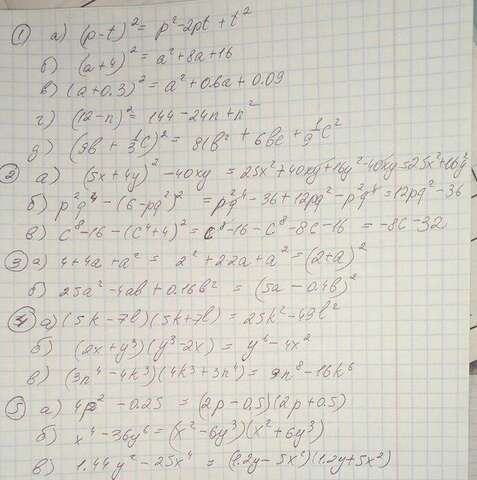 ① а) (p-t)² = p²-2pt+t²
б) (a+4)² = a²+8a+16
в) (a+0.3)² = a²+0.6a+0.09
г) (12-n)² = 144-24n+n²
д) (9b + 1/3c)² = 81b² + 6bc + 1/9c²
② а) (5x+4y)² -40xy = 25x²+40xy+16y²-40xy=25x²+16y²
б) p²q⁴ - (6-pq²)² = p²q⁴-36+12pq²-p²q⁴=12pq²-36
в) c⁸-16-(c⁴+4)² = c⁸-16-c⁸-8c-16 = -8c-32
③ а) 4+4a+a² = 2²+2·2a+a² = (2+a)²
б) 25a²-4ab+0.16b² = (5a-0.4b)²
④ а) (5k-7l)(5k+7l) = 25k²-49l²
б) (2x+y³)(y³-2x) = y⁶-4x²
в) (3n⁴-4k³)(4k³+3n⁴) = 9n⁸-16k⁶
⑤ а) 4p²-0.25 = (2p-0.5)(2p+0.5)
б) x⁴-36y⁶=(x²-6y³)(x²+6y³)
в) 1.44y²-25x⁴ = (1.2y-5x²)(1.2y+5x²)